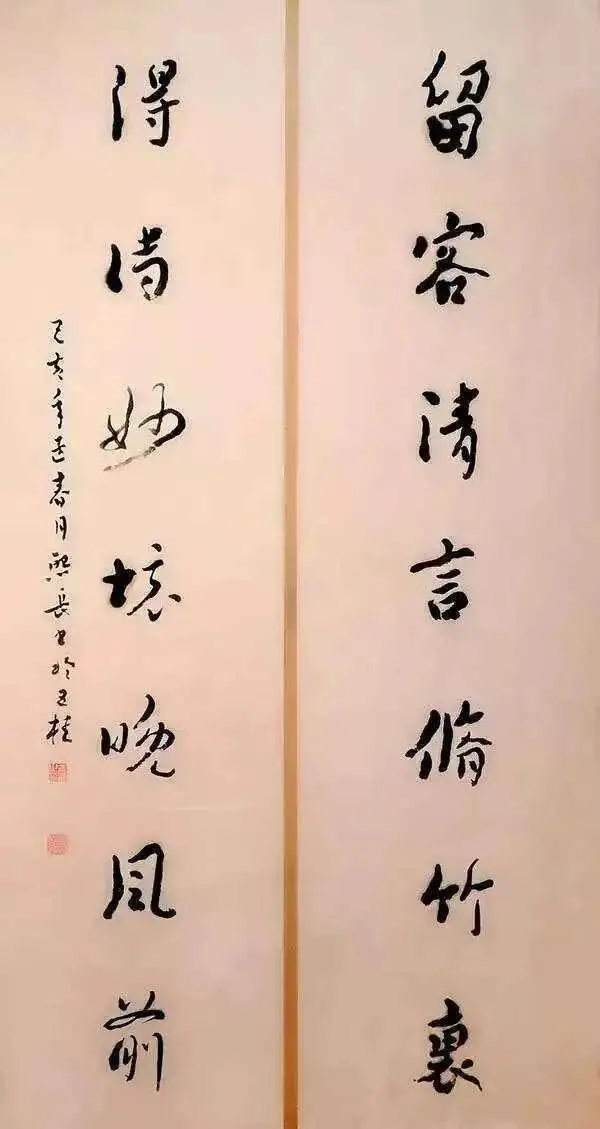 留客清言脩竹裏
得詩妙境晚風前
己亥年孟春月熙長書於五桂